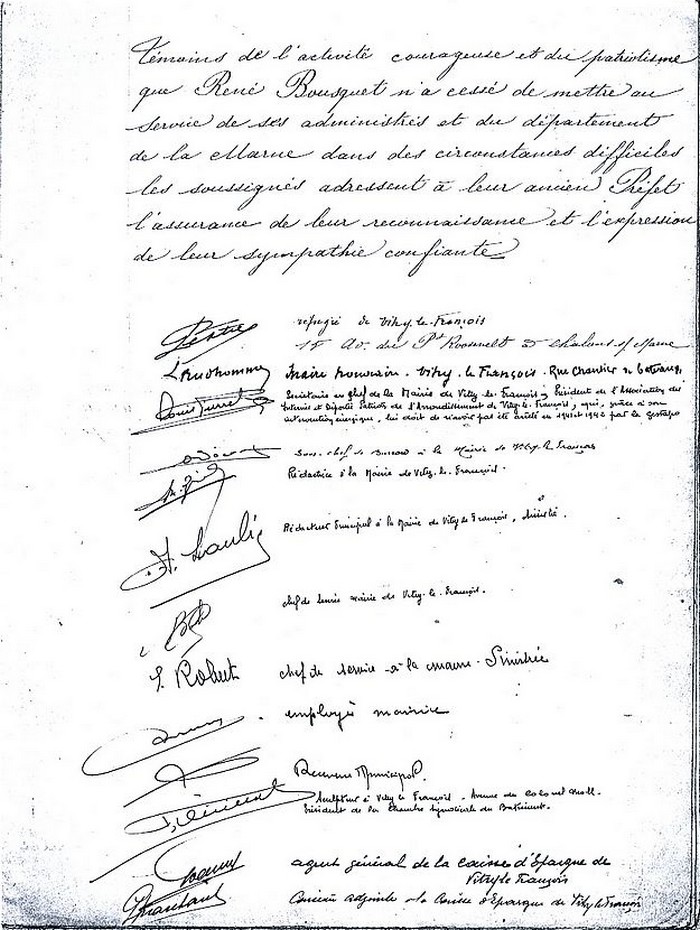 Témoins de l'activité courageuse et du patriotisme
que René Bousquet n'a cessé de mettre au
service de ses administrés et du département
de la Marne dans des circonstances difficiles
les soussignés adressent à leur ancien Préfet
l'assurance de leur reconnaissance et l'expression
de leur sympathie confiante
réfugié de Vitry-le-François
15 Av. du Pt Roosevelt Chalons s/ Marne
Vitry-le-François. Rue
Secrétaire en chef de la Mairie de Vitry-le-François, Président de l'Association des
Internés et Déportés Patriotes de l'Arrondissement de Vitry-le-François, qui, grâce à son
intervention énergique, lui doit de n'avoir pas été arrêté en 1941 et 1942 par la gestapo
Sous-chef de Bureau à la Mairie de Vitry-le-François
Rédactrice à la Mairie de Vitry-le-François.
Rédacteur Principal à la Mairie de Vitry-le-François, Sinistré.
chef de mairie de Vitry-le-François.
Robert chef de service à la mairie. Sinistrée
employé mairie
Receveur Municipal.
Sculpteur à Vitry-le-François - Avenue du Colonel Moll.
Président de la Chambre Syndicale du Bâtiment.
agent général de la Caisse d'Epargne de
Vitry-le-François
adjointe à la Caisse d'Epargne de Vitry-le-François